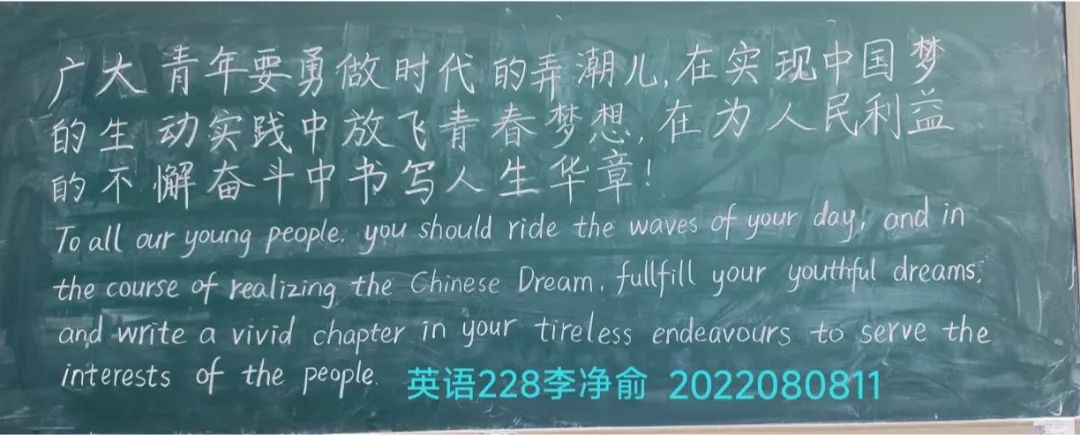 广大青年要勇做时代的弄潮儿,在实现中国梦
的生动实践中放飞青春梦想,在为人民利益
的不懈奋斗中书写人生华章!
To all our young people. you should ride the waves of your day, and in
the course of realizing the Chinese Dream, fullfill your youthful dreams,
and write a vivid chapter in your tireless endeavours to serve the
interests of the people.
英语228李净俞 2022080811